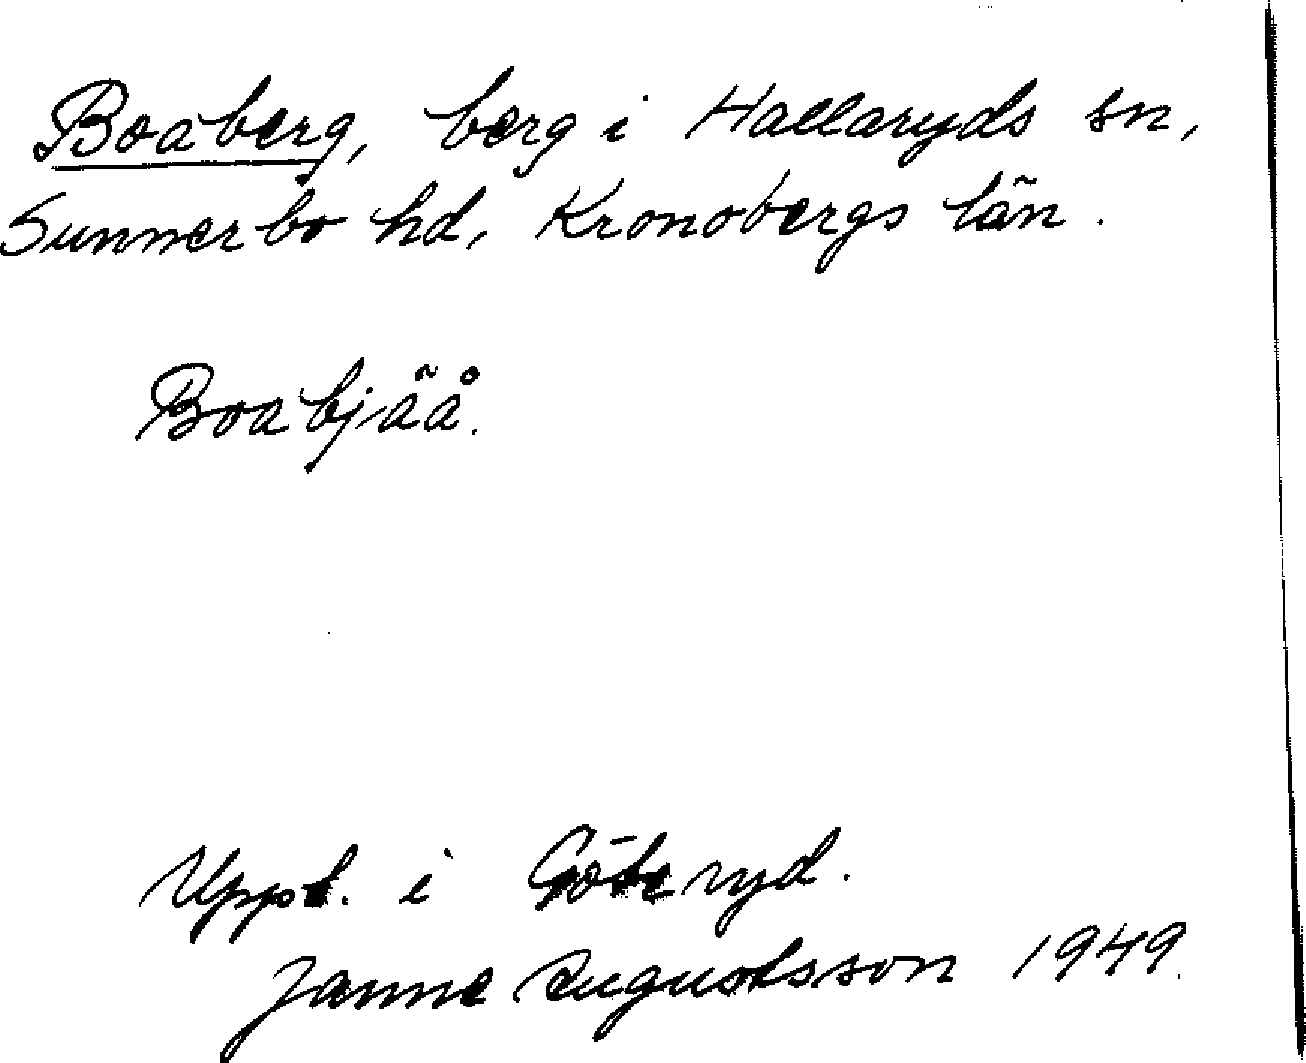 Boaberg, berg i Hallaryds sn,
Sunnerbo hd, Kronobergs län.
Boabjäå.
Uppt. i Göteryd.
Janne Augustsson 1949.